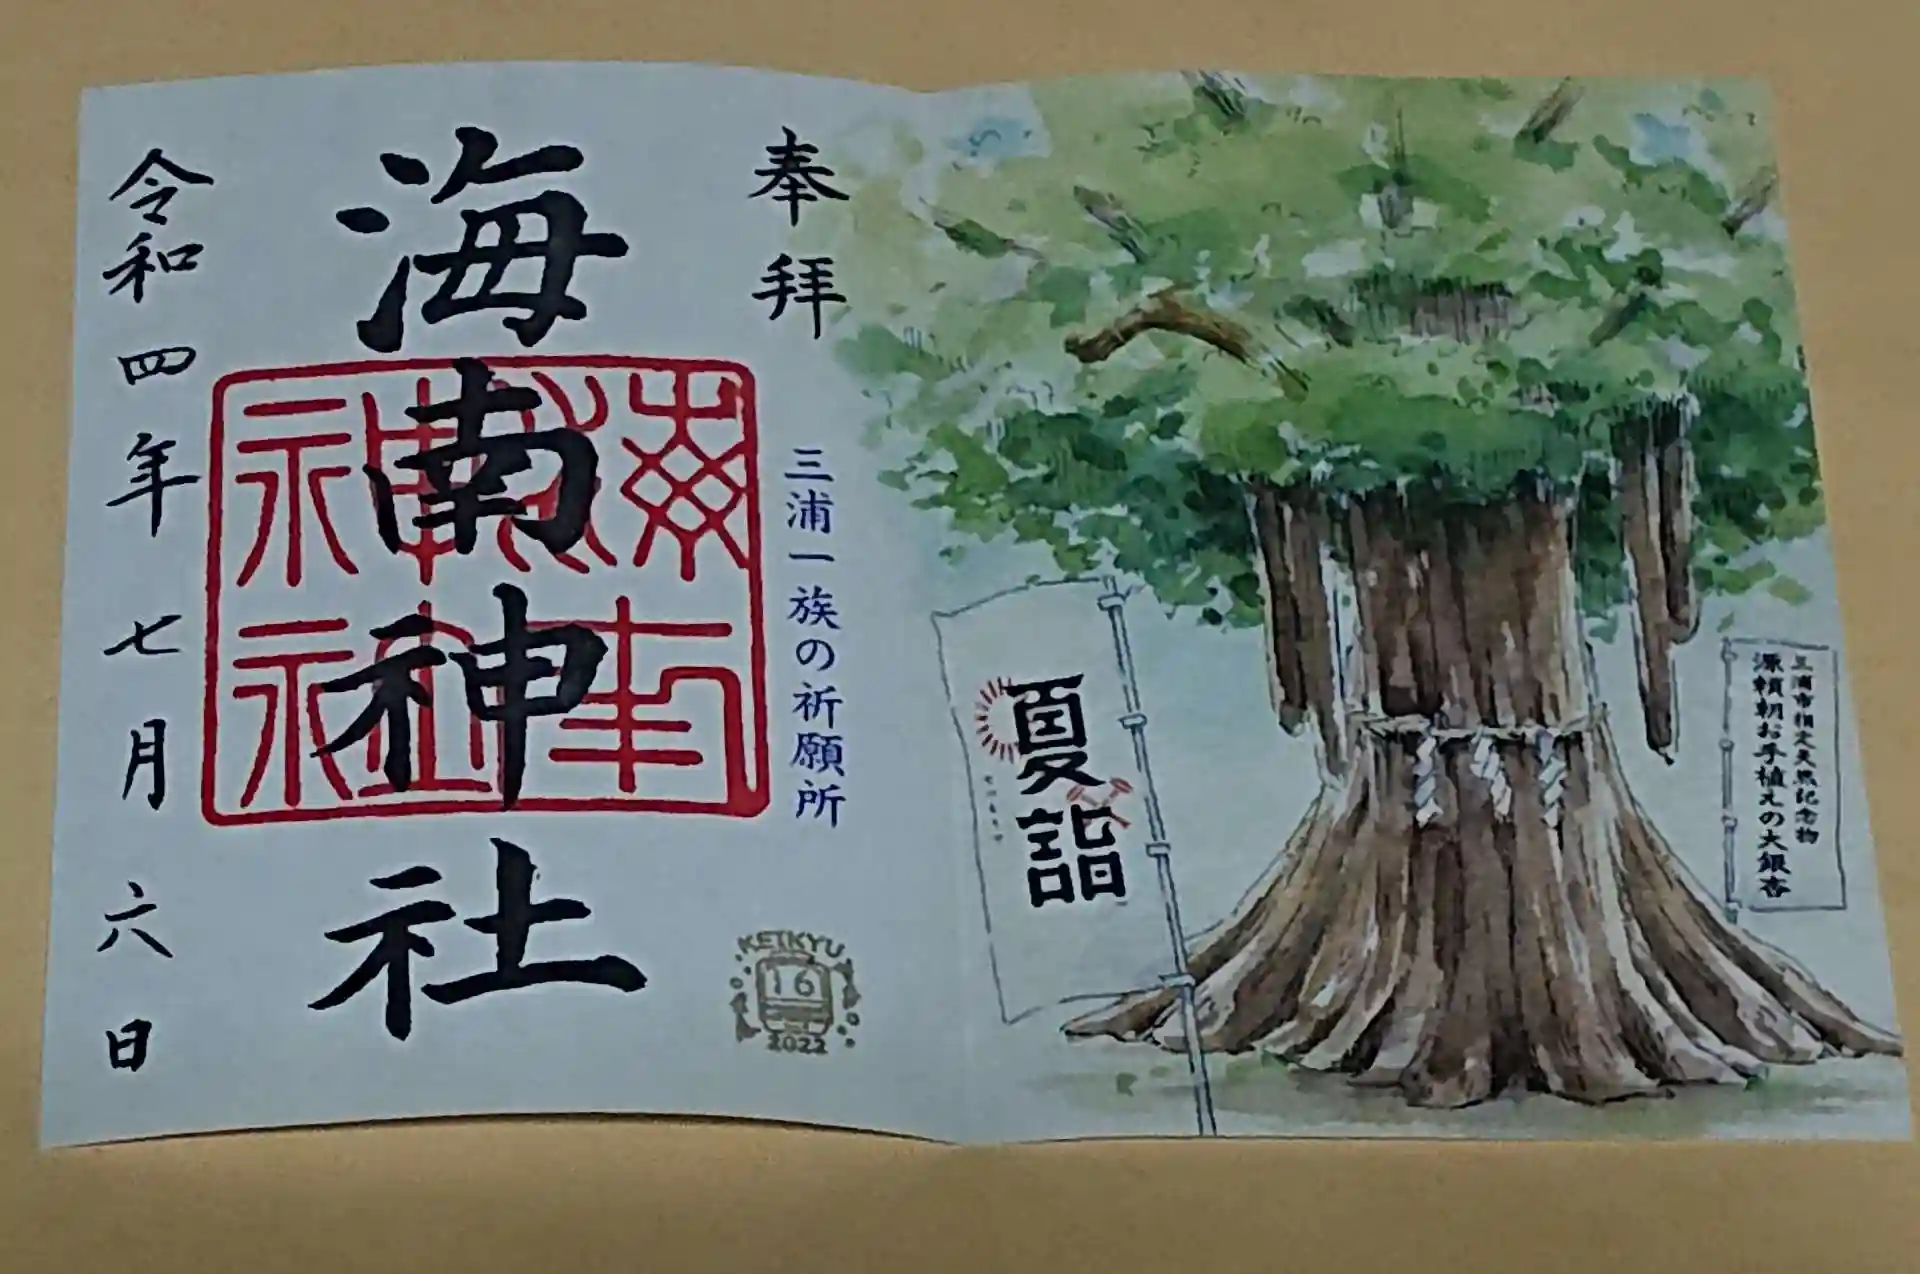 三浦市指定天然記念物
源頼朝お手植えの大銀杏
夏詣
奉拝
三浦一族の祈願所
海南神社
海南神社
令和四年七月六日
KEIKYU
16
2022